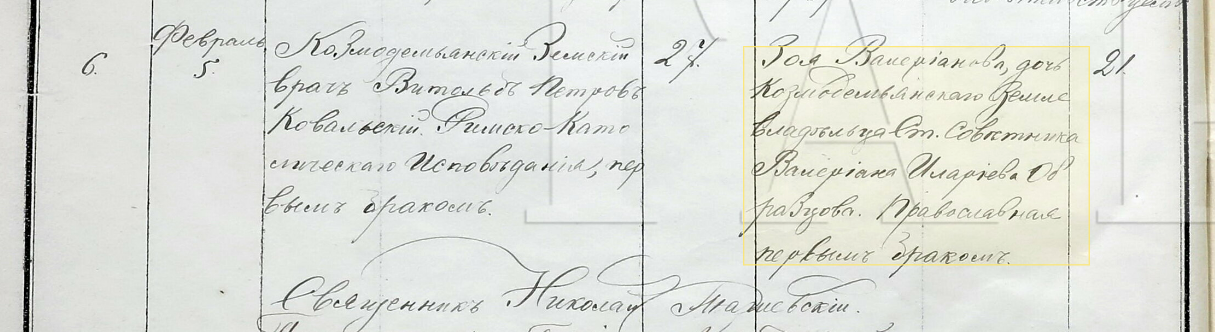 6.
Февраль
5.
Козмодемьянскій Земскій
врачъ Витольдъ Петровъ
Ковальскій. Римско-Като
лическаго Исповѣданія, пер
вымъ бракомъ.
27.
Зоя Валеріанова, дочь
Козмодемьянскаго Земле
владѣльца Ст. Совѣтника
Валеріана Иларіева Об
разцова. Православная
первымъ бракомъ.
21.
Священникъ Николай